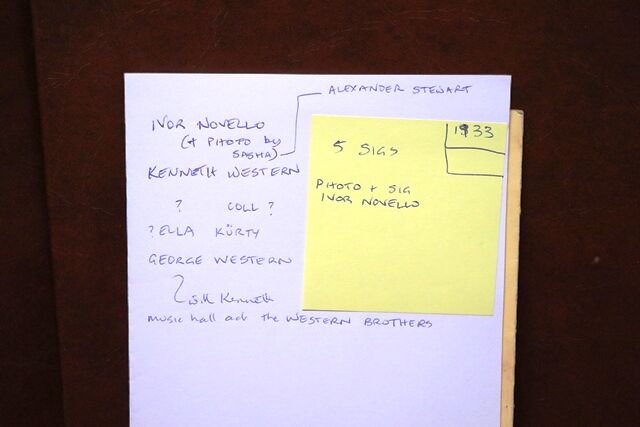 ALEXANDER STEWART
IVOR NOVELLO
(+ PHOTO by
SASHA)
KENNETH WESTERN
? COLL ?
? ELLA KÜRTY
GEORGE WESTERN
with Kenneth
music hall act the WESTERN BROTHERS
1933
5 SIGS
PHOTO + SIG
IVOR NOVELLO